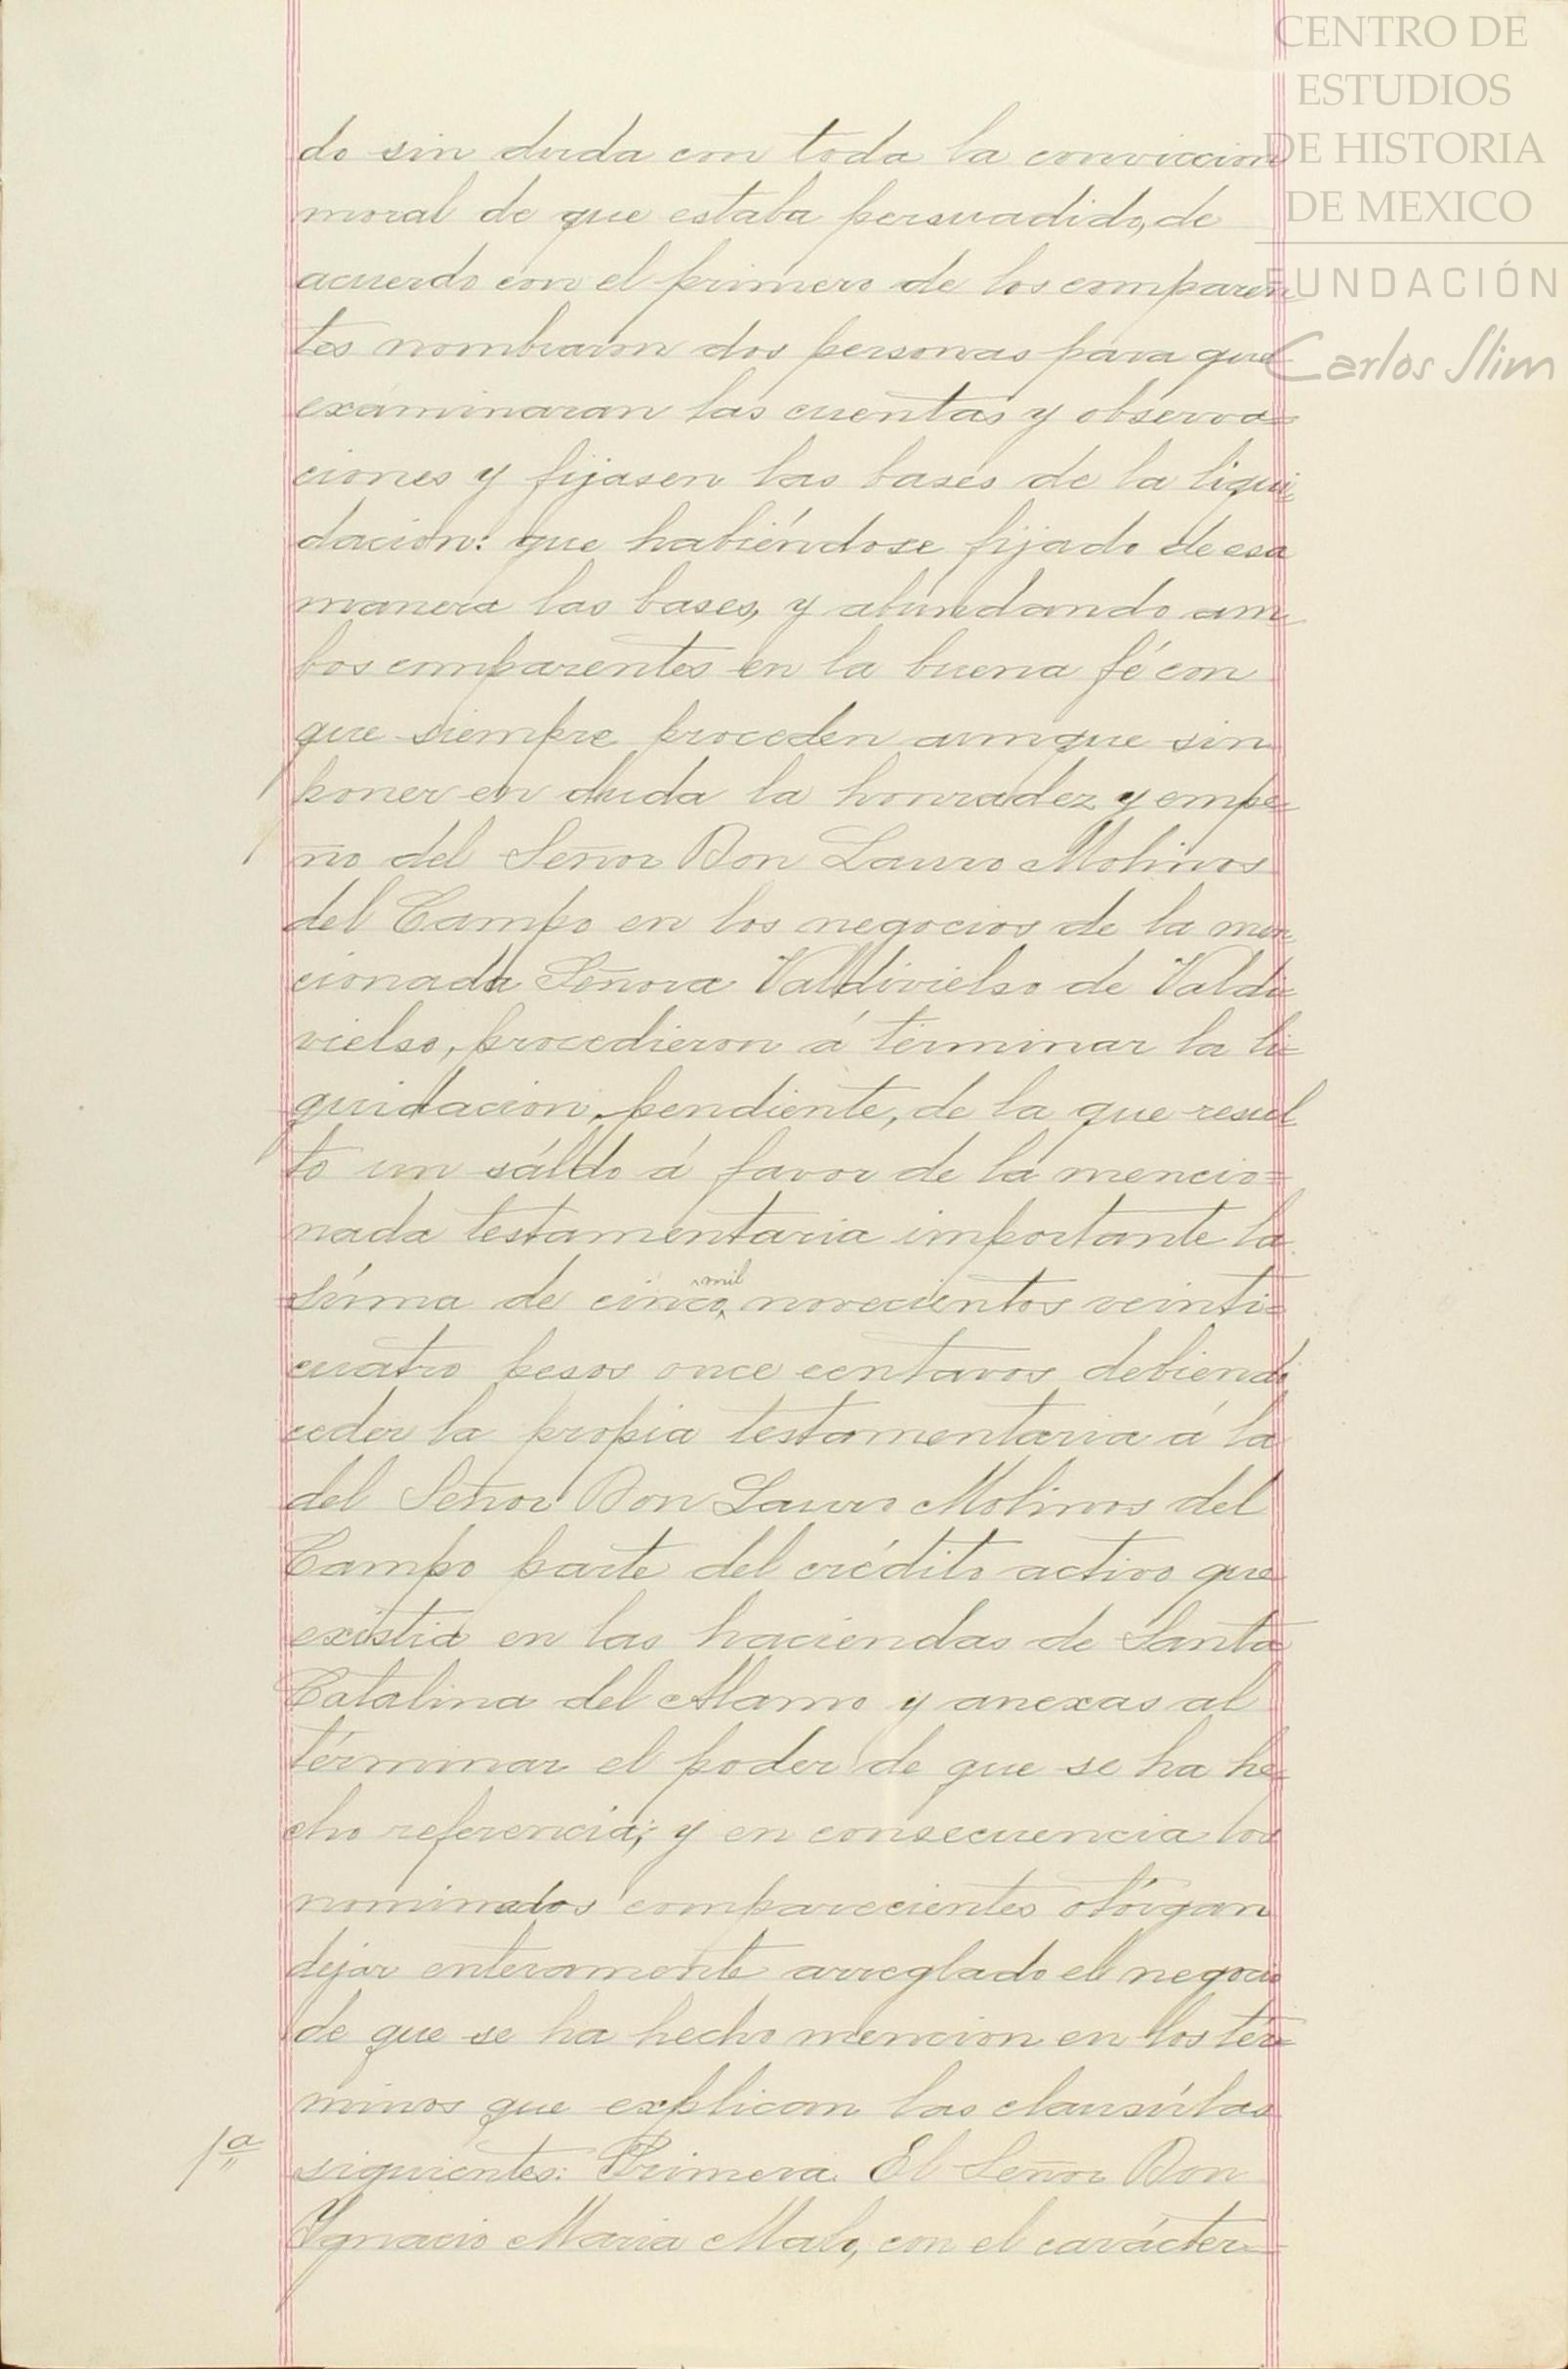 CENTRO DE
ESTUDIOS
DE HISTORIA
DE MEXICO
FUNDACIÓN
Carlos Slim
do sin duda con toda la conviccion
moral de que estaba persuadido, de
acuerdo con el primero de los comparen
tes nombraron dos personas para que
examinaran las cuentas y observa=
ciones y fijasen las bases de la liqui=
dacion: que habiéndose fijado de esa
manera las bases, y abundando am
bos comparentes en la buena fé con
que siempre proceden aunque sin
poner en duda la honradez y empe=
ño del Señor Don Lauro Molinos
del Campo en los negocios de la men
cionada Señora Valdivielso de Valdi=
vielso, procedieron á terminar la li=
quidacion, pendiente, de la que resul
tó un sáldo á favor de la mencio=
nada testamentaria importante la
súma de cinco mil novecientos veinti=
cuatro pesos once centavos debiendo
ceder la propia testamentaria á la
del Señor Don Lauro Molinos del
Campo parte del crédito activo que
existia en las haciendas de Santa
Catalina del Alamo y anexas al
términar el poder de que se ha he=
cho referencia; y en consecuencia los
nominados comparecientes otórgan
dejar enteramente arreglado el negocio
de que se ha hecho mencion en los tér=
minos que explican las clausúlas
1ª siguientes: Primera. El Señor Don
Ygnacio Maria Malo, con el carácter